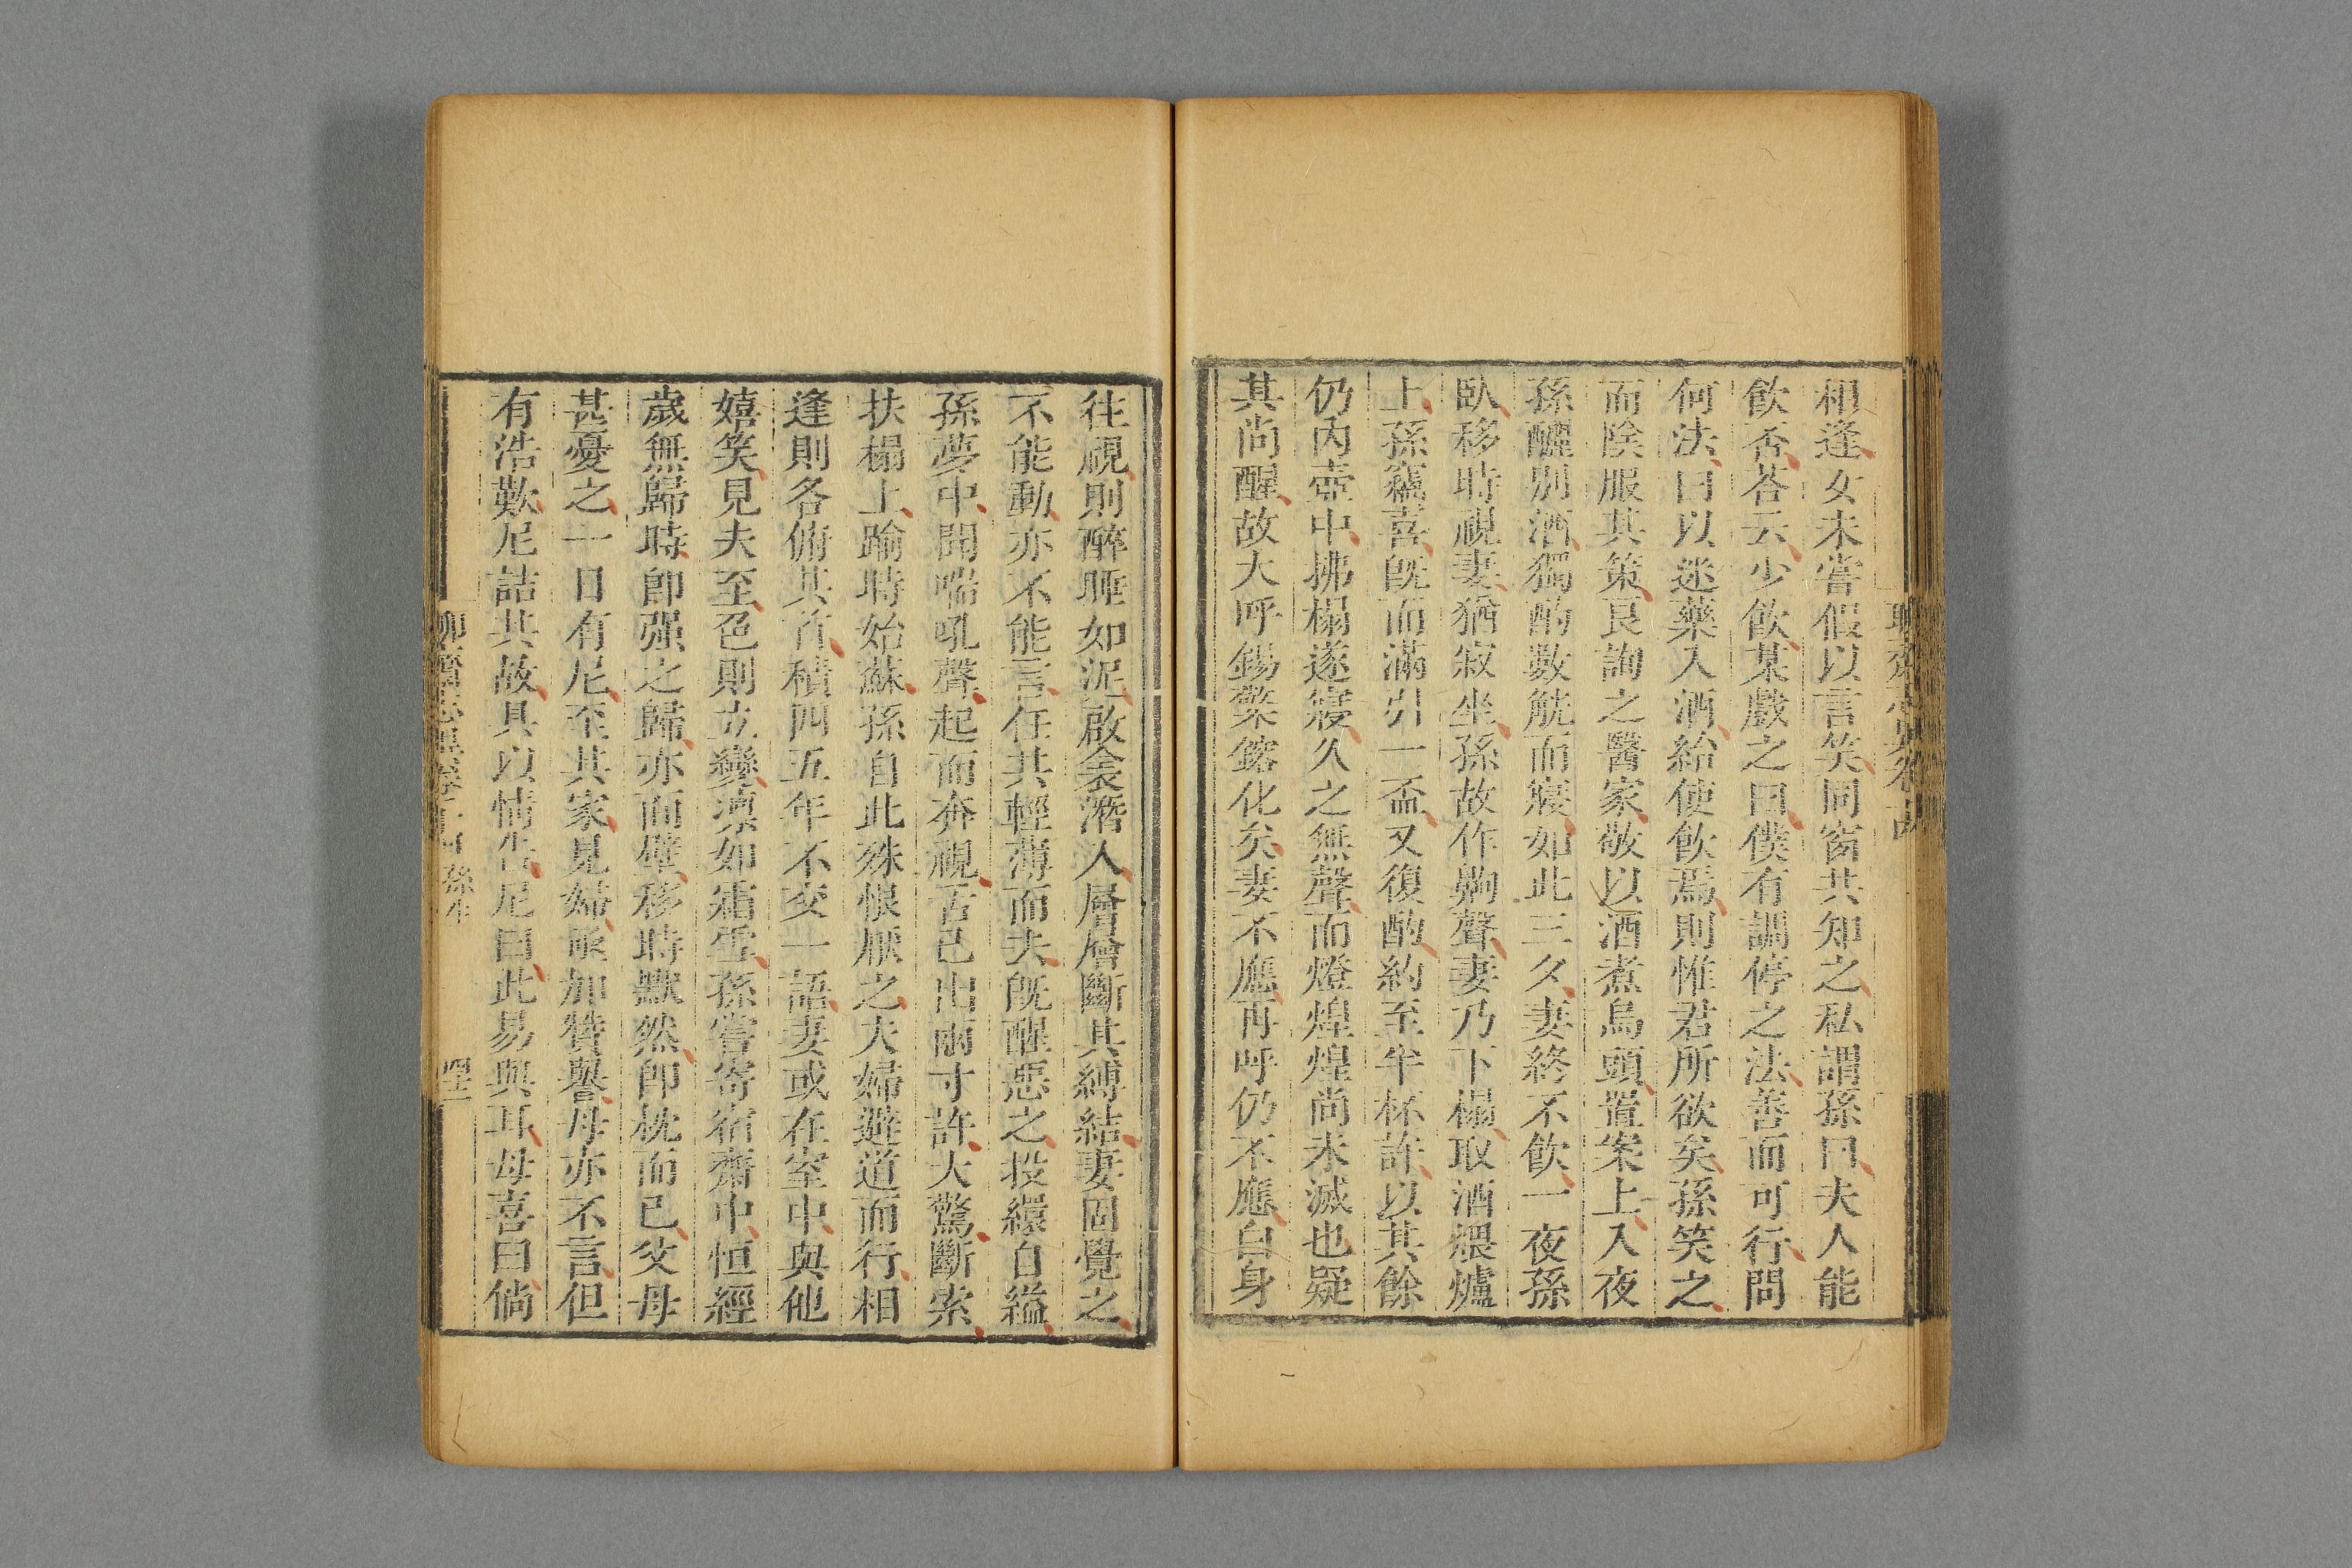 相逢女未嘗假以言笑同窗共知之私謂孫曰夫人能
飲否荅云少飲某戲之曰僕有調停之法善而可行問
何法曰以迷藥入酒紿使飲焉則惟君所欲矣孫笑之
而陰服其策良詢之醫家敬以酒煮烏頭置案上入夜
孫釃别酒獨酌數觥而寢如此三夕妻終不飲一夜孫
臥移時視妻猶寂坐孫故作齁聲妻乃下榻取酒煨爐
上孫竊喜旣而滿引一盃又復酌約至半杯許以其餘
仍内壺中拂榻遂寢久之無聲而燈煌煌尚未滅也疑
其尚醒故大呼錫檠鎔化矣妻不應再呼仍不應白身
往視則醉睡如泥啟衾潛入層層斷其縛結妻固覺之
不能動亦不能言任其輕薄而去旣醒惡之投繯自縊
孫夢中聞喘吼聲起而奔視舌已出兩寸許大驚斷索
扶榻上踰時始蘇孫自此殊恨厭之夫婦避道而行相
逢則各俯其首積四五年不交一語妻或在室中與他
嬉笑見夫至色則立變凜如霜雪孫嘗寄宿齋中恒經
歲無歸時卽强之歸亦面壁移時默然卽枕而已父母
甚憂之一日有尼至其家見婦亟加贊譽母亦不言但
有浩歎尼詰其故具以情告尼曰此易與耳母喜曰倘
孫生